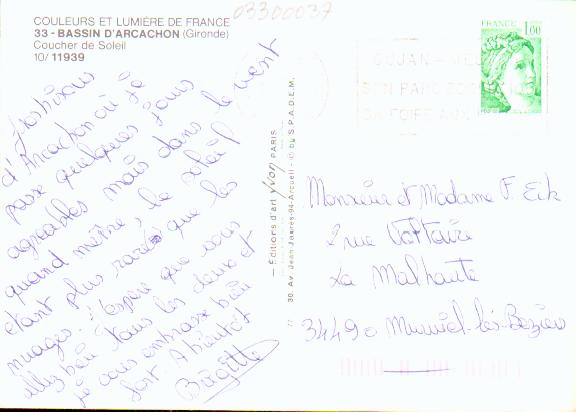 03300037
COULEURS ET LUMIÈRE DE FRANCE
33 - BASSIN D'ARCACHON (Gironde)
Coucher de Soleil
10/ 11939
bisous
d'Arcachon où je
passe quelques jours
agréables mais dans le vent
quand même, le soleil
étant plus rare que les
nuages. J'espère que vous
allez bien tous les deux et
je vous embrasse bien
fort. A bientôt
Brigitte
— Éditions d'art YVON PARIS
30, Av. Jean Jaurès-94-Arcueil - © by S.P.A.D.E.M.
FRANCE
1,00
GUJAN-
SON PARC
SA FOIRE AUX
Monsieur et Madame F Eck
2 rue Voltaire
La Malhaute
34490 Murviel-lès-Béziers